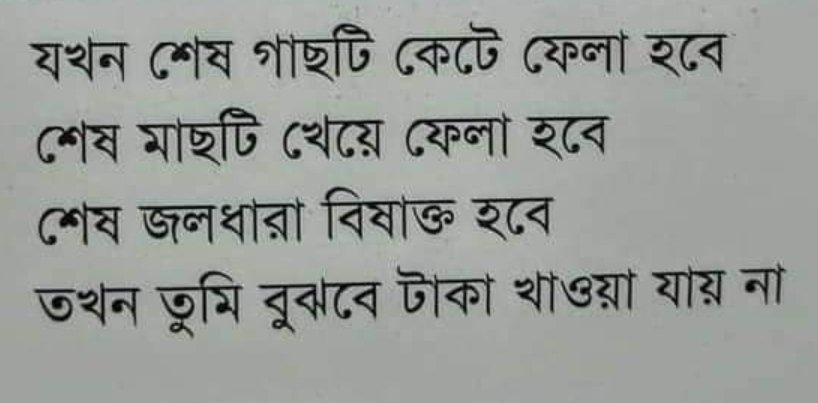 যখন শেষ গাছটি কেটে ফেলা হবে
শেষ মাছটি খেয়ে ফেলা হবে
শেষ জলধারা বিষাক্ত হবে
তখন তুমি বুঝবে টাকা খাওয়া যায় না